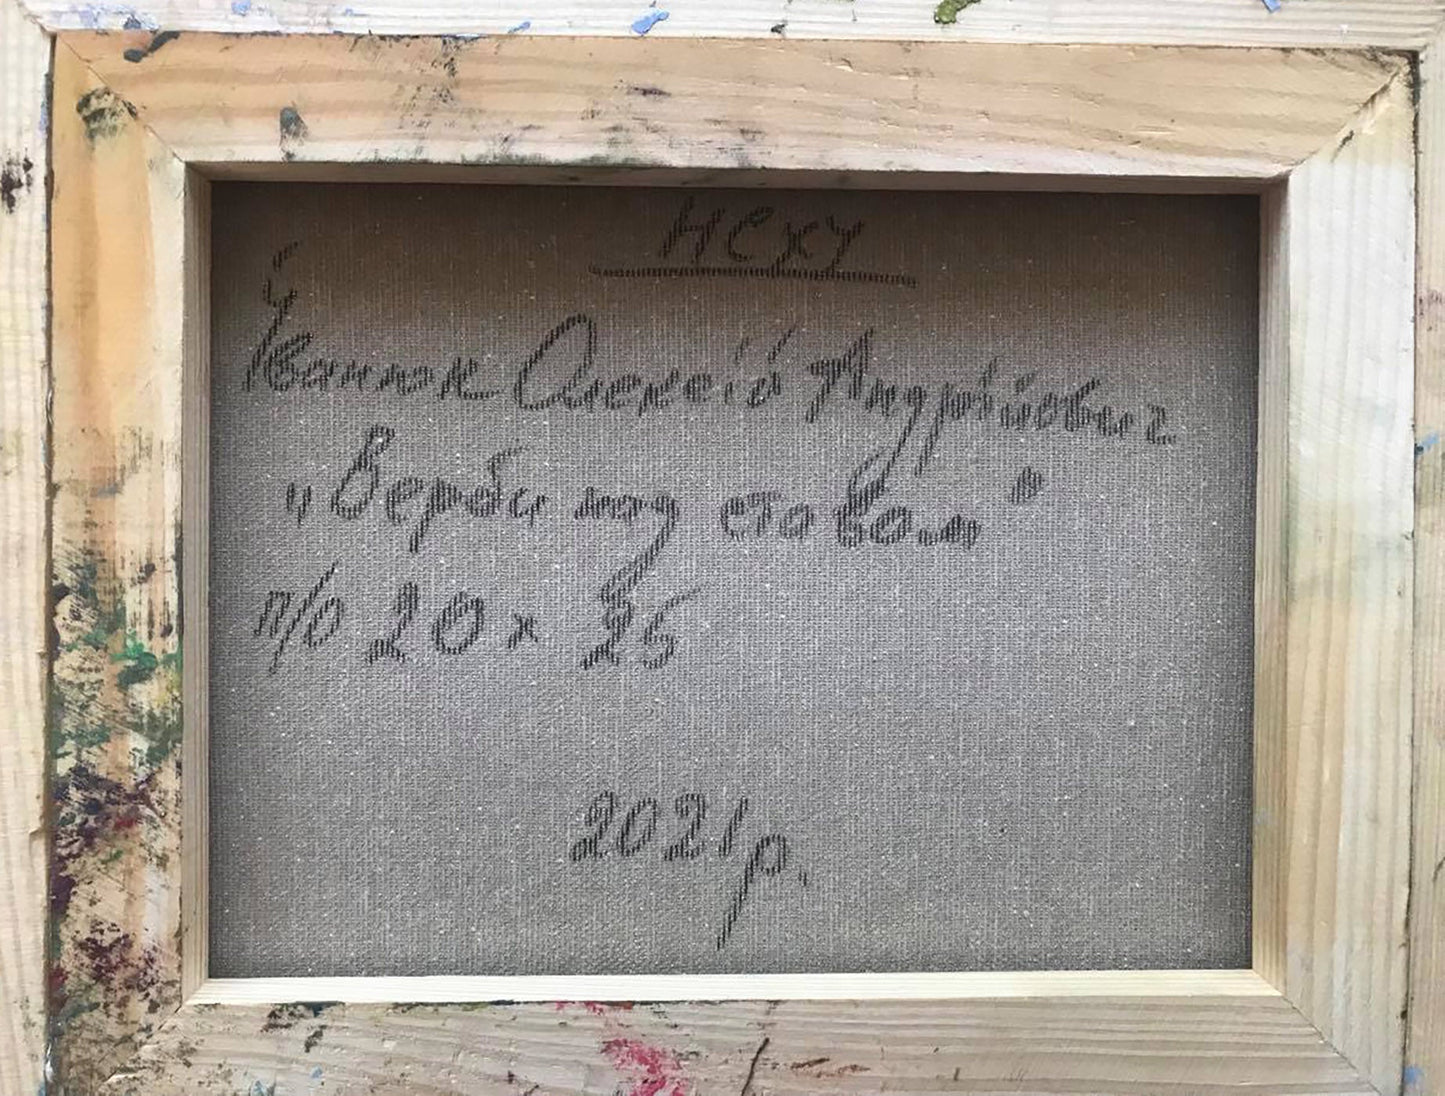 НСХУ
Іванюк Олексій Андрійович
„Верби над ставом"
п/о 20 x 25
2021р.